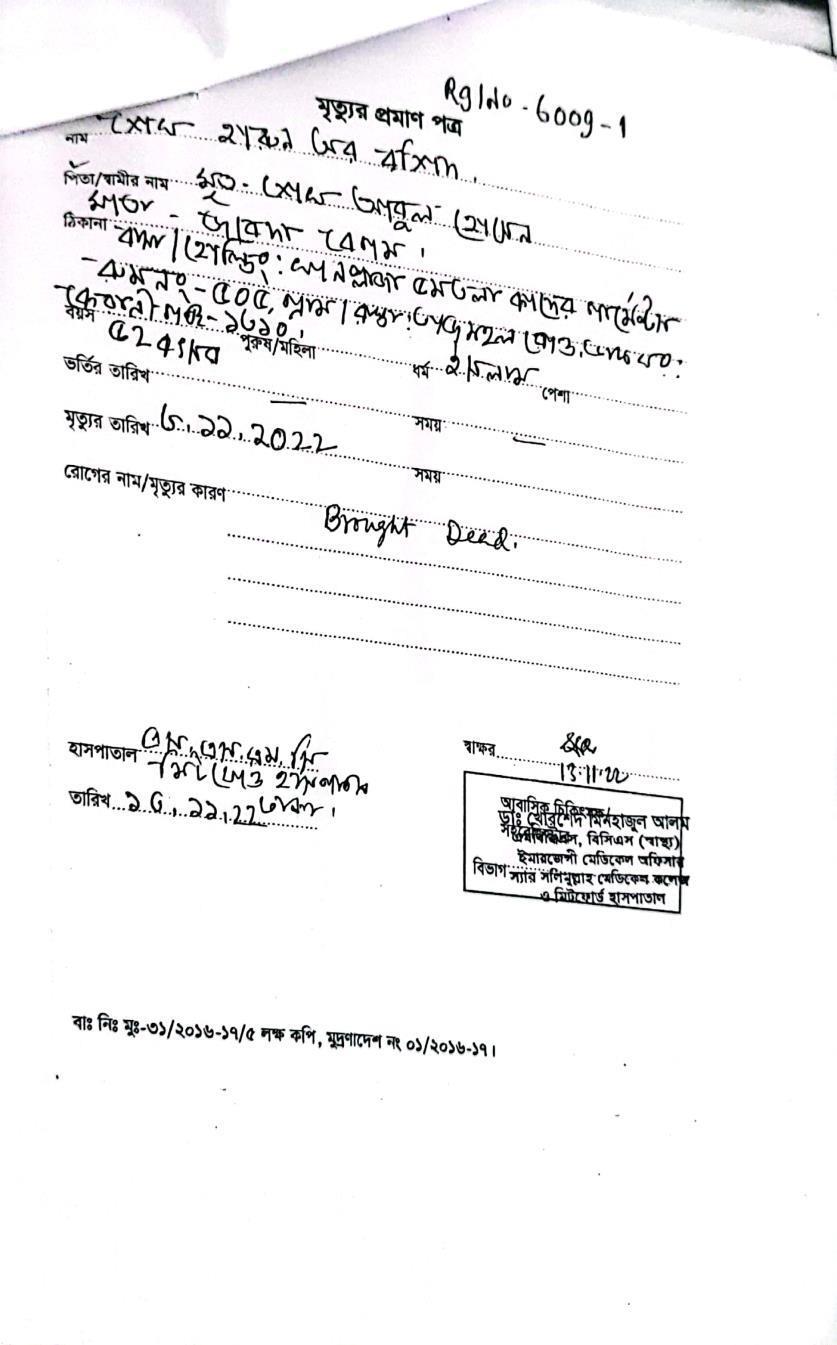 Rg/No - 6009-1
মৃত্যুর প্রমাণ পত্র
নাম শেখ হারুন অর রশিদ
পিতা/স্বামীর নাম মৃত - শেখ আবুল হোসেন
মাতা - বেগম।
ঠিকানা বাসা/হোল্ডিং: ৫মতলা কাদের
রুম নং - ৫০৫, গ্রাম/রাস্তা: তাজমহল রোড,
- ১৩১০,
বয়স ৫২ পুরুষ/মহিলা ধর্ম ইসলাম পেশা
ভর্তির তারিখ — সময় —
মৃত্যুর তারিখ ১১, 2022 সময়
রোগের নাম/মৃত্যুর কারণ
Brought Dead.
হাসপাতাল এস, এস, এম, সি
মিটফোর্ড হাসপাতাল
স্বাক্ষর
13.11.22
তারিখ ১৩, ১১, 22 ঢাকা।
আবাসিক চিকিৎসক/
ডাঃ খোরশেদ মিনহাজুল আলম
বিসিএস (স্বাস্থ্য)
ইমারজেন্সী মেডিকেল অফিসার
বিভাগ স্যার সলিমুল্লাহ মেডিকেল কলেজ
ও মিটফোর্ড হাসপাতাল
বাঃ নিঃ মুঃ-৩১/২০১৬-১৭/৫ লক্ষ কপি, মুদ্রণাদেশ নং ০১/২০১৬-১৭।